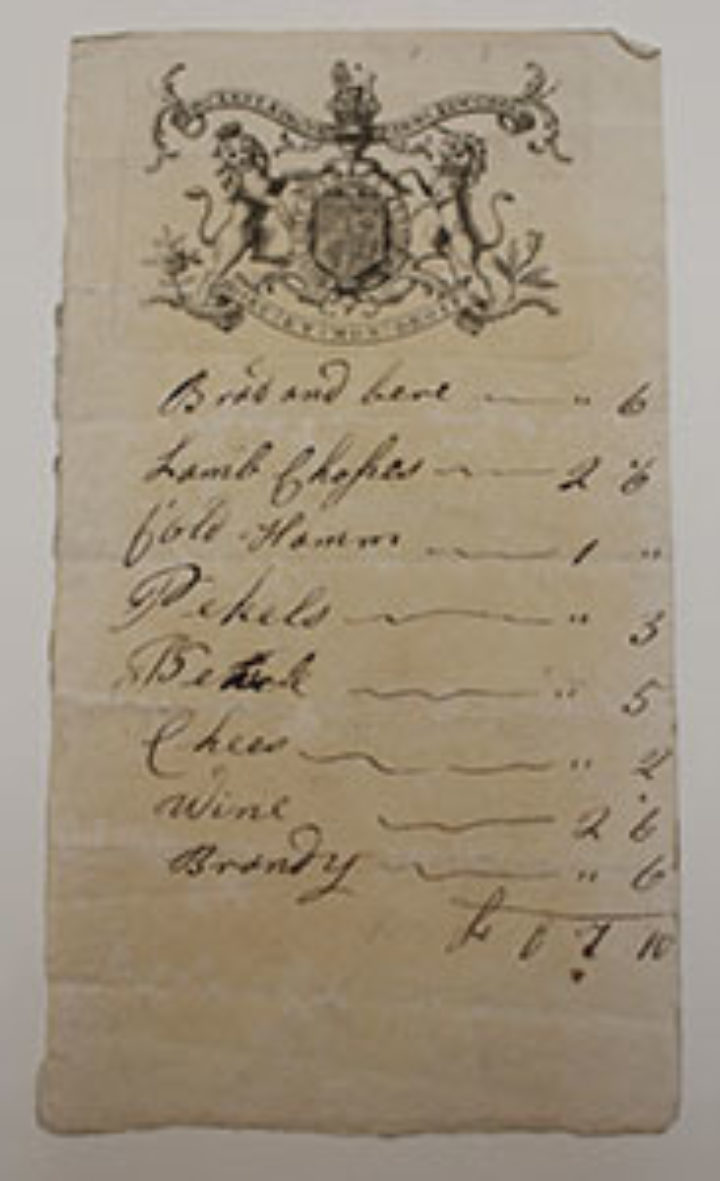 Brad and bere — " 6
Lamb Chopes — 2 6
Cold Hamm — 1 "
Pekels — " 3
— " 5
Chees — " 2
Wine — 2 6
Brandy — " 6
£ 0 7 10